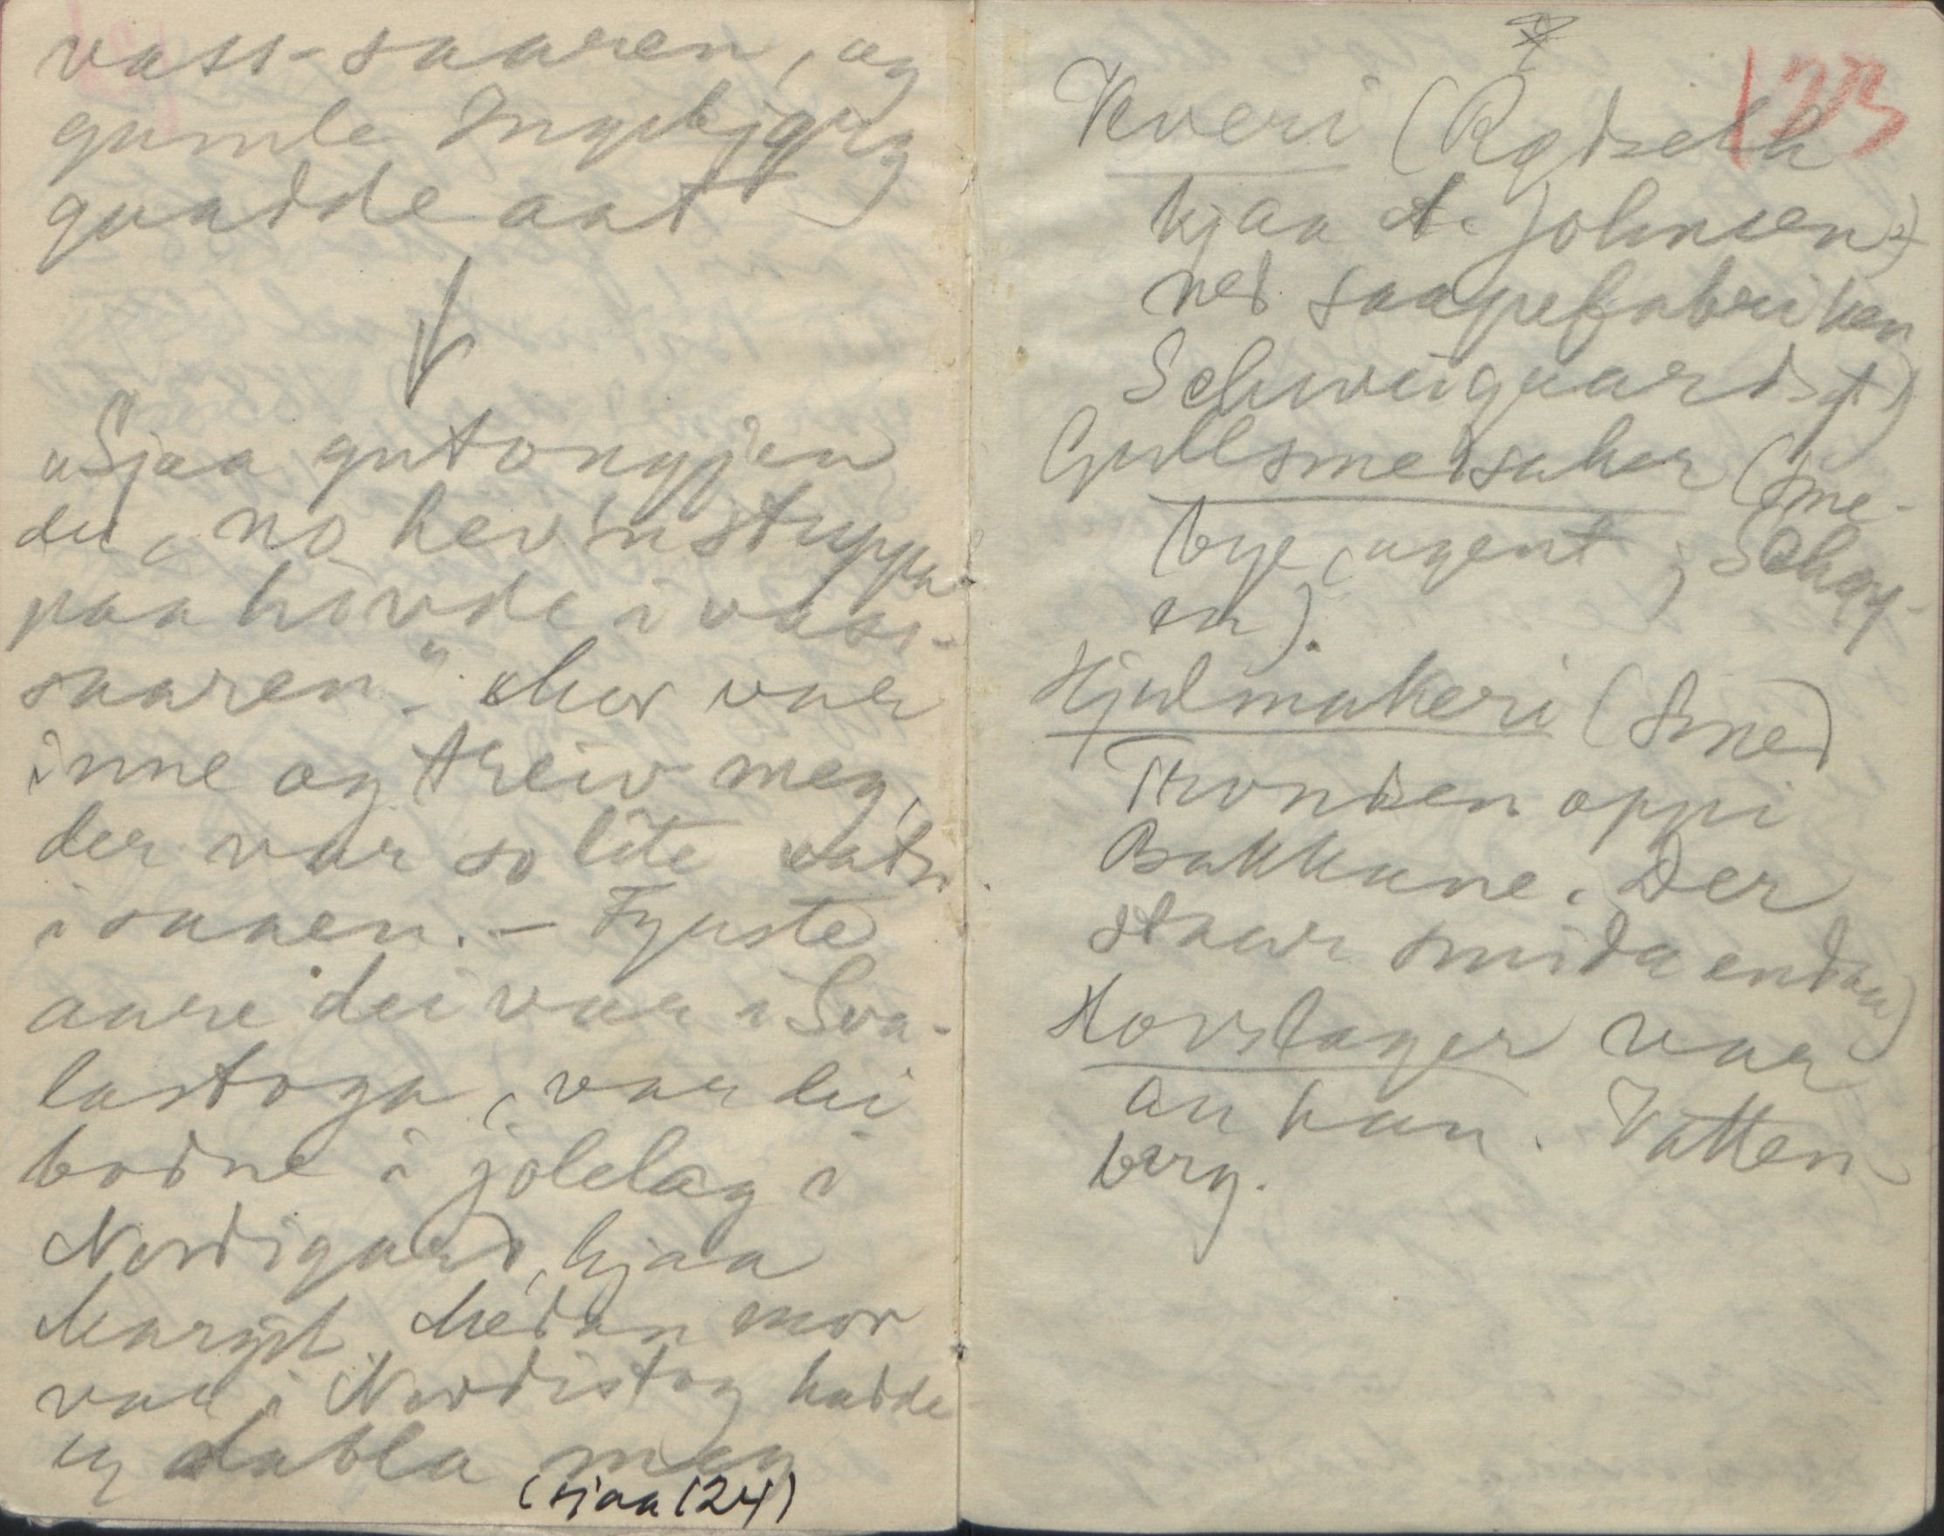 vass-saaren, og
gamle Ingebjørg
gvadde aat
"Sjaa gutongjen
dei, no hev'n stuppa
paa hovde i vass-
saaren". Mor var
inne og treiv meg,
der var so lite vatn
i saaen. – Fyuste
aare dei var i Sva-
lastoga, var dei
bodne i jolelag i
Nordigard, hjaa
Margit. Medan mor
var i Nordistog hadde
eg dabla meg
(sjaa 124)
123
Kveri (Rødseth
hjaa A. Johnsen)
ned saapefabriken
Schweigaardsgt)
Gullsmedsaker (Sme-
bye, agent, Schøy-
en).
Hjulmakeri (Smed
Trondsen oppi
Bakkane. Der
staar smida endaa)
Hovslager var
an han. Vatten
berg.